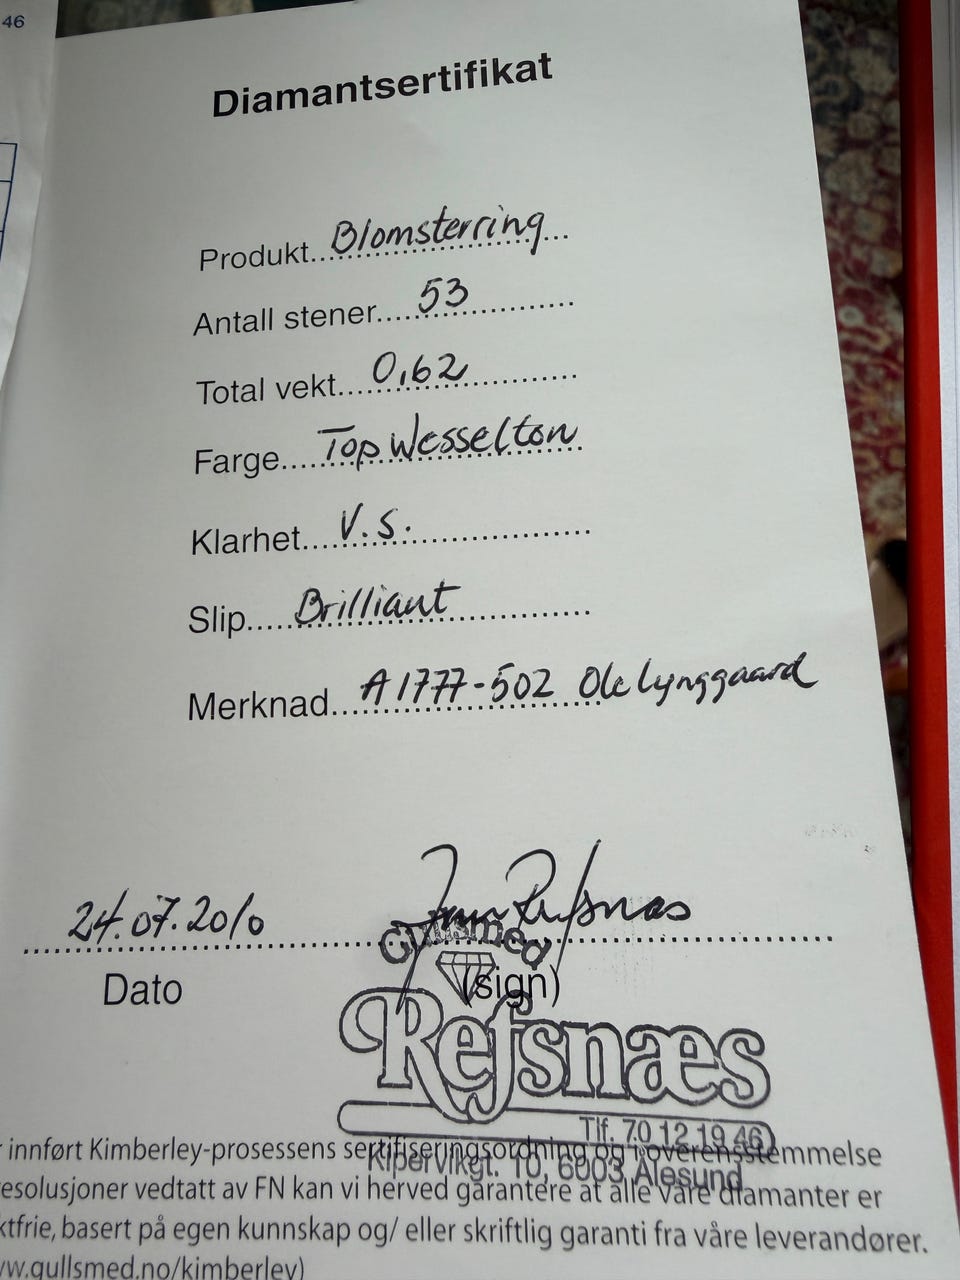 46
Diamantsertifikat
Produkt...Blomsterring...
Antall stener.....53............
Total vekt....0,62............
Farge.....Top Wesselton.
Klarhet....V.S...................
Slip.....Brilliant...............
Merknad...A1777-502 Ole Lynggaard
24.07.2010
Dato
(sign)
Gullsmed
Refsnæs
Tlf. 70 12 19 46
Kipervikgt. 10, 6003 Ålesund
innført Kimberley-prosessens sertifiseringsordning og i overensstemmelse
esolusjoner vedtatt av FN kan vi herved garantere at alle våre diamanter er
ktfrie, basert på egen kunnskap og/ eller skriftlig garanti fra våre leverandører.
w.gullsmed.no/kimberley)